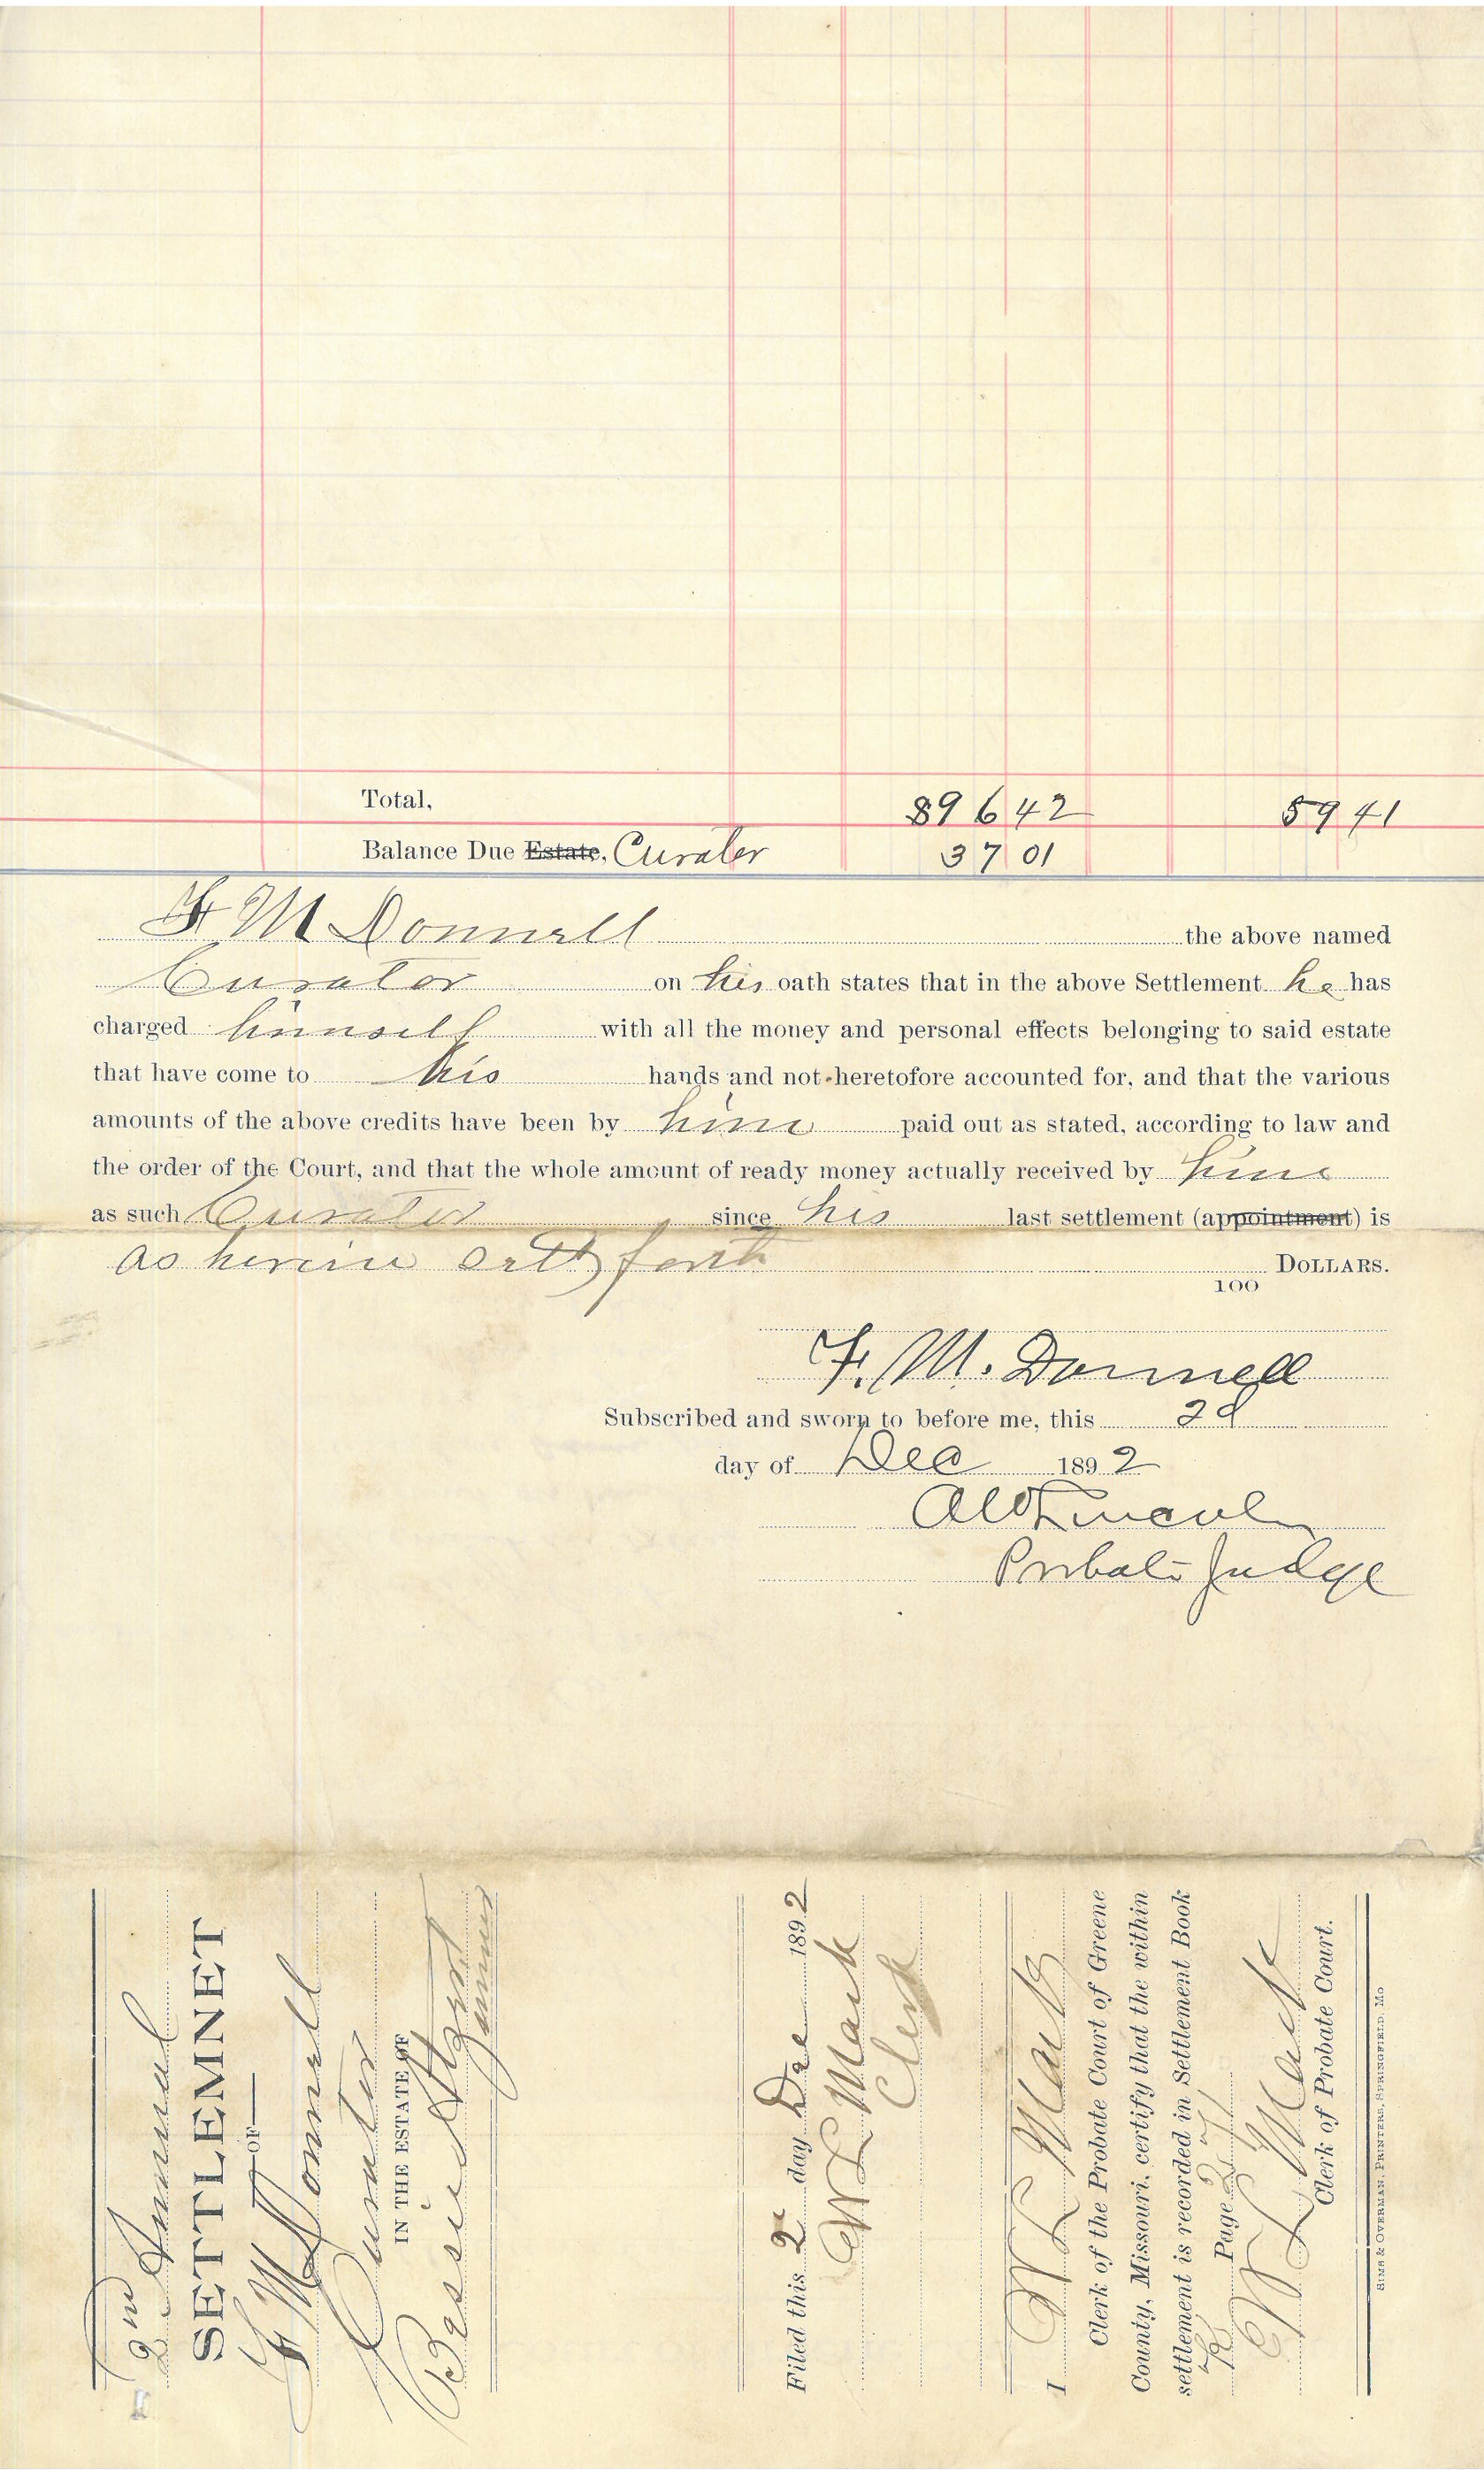 Total, 896 42 59 41
Balance Due Estate, Curator 37 01
F M Donnell the above named
Curator on his oath states that in the above Settlement he has
charged himself with all the money and personal effects belonging to said estate
that have come to his hands and not heretofore accounted for, and that the various
amounts of the above credits have been by him paid out as stated, according to law and
the order of the Court, and that the whole amount of ready money actually received by him
as such Curator since his last settlement (appointment) is
as herein sett forth DOLLARS.
100
F. M. Donnell
Subscribed and sworn to before me, this 2d
day of Dec 1892
A W Lincoln
Probate Judge
2nd Annual
SETTLEMNET
OF
F M Donnell
Curator
IN THE ESTATE OF
Bessie
minor
Filed this 2 day Dec 1892
W L Mack
Clerk
I W L Mack
Clerk of the Probate Court of Greene
County, Missouri, certify that the within
settlement is recorded in Settlement Book
Page 271
W L Mack
Clerk of Probate Court.
SIMS & OVERMAN, PRINTERS, SPRINGFIELD, MO